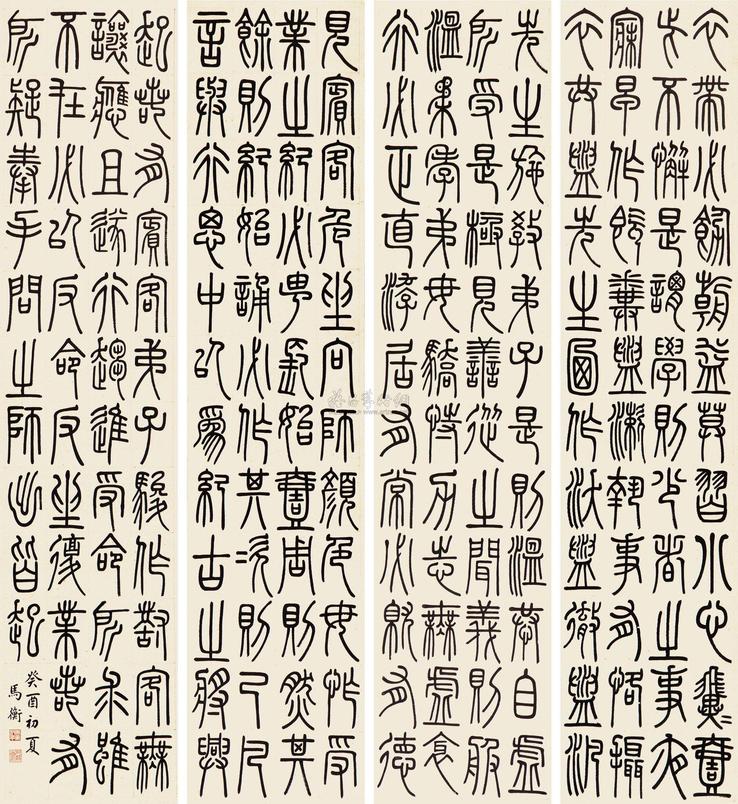 衣帶必飭朝益暮習小心翼〻壹
此不懈是謂學則少者之事夜
寐早作既拚盥漱執事有恪攝
衣共盥先生乃作沃盥徹盥汎
先生施教弟子是則溫恭自虛
所受是極見善從之聞義則服
溫柔孝弟毋驕恃力志無虛衺
行必正直游居有常必就有德
見賓客危坐向師顏色毋怍受
業之紀必由長始壹周則然其
餘則紀始誦必作其次則已凡
言與行思中以為紀古之將興
起若有賓客弟子駿作對客無
讓應且遂行趨進受命所求雖
不在必以反命反坐復業若有
所疑奉手問之師出皆起
癸酉初夏
馬衡